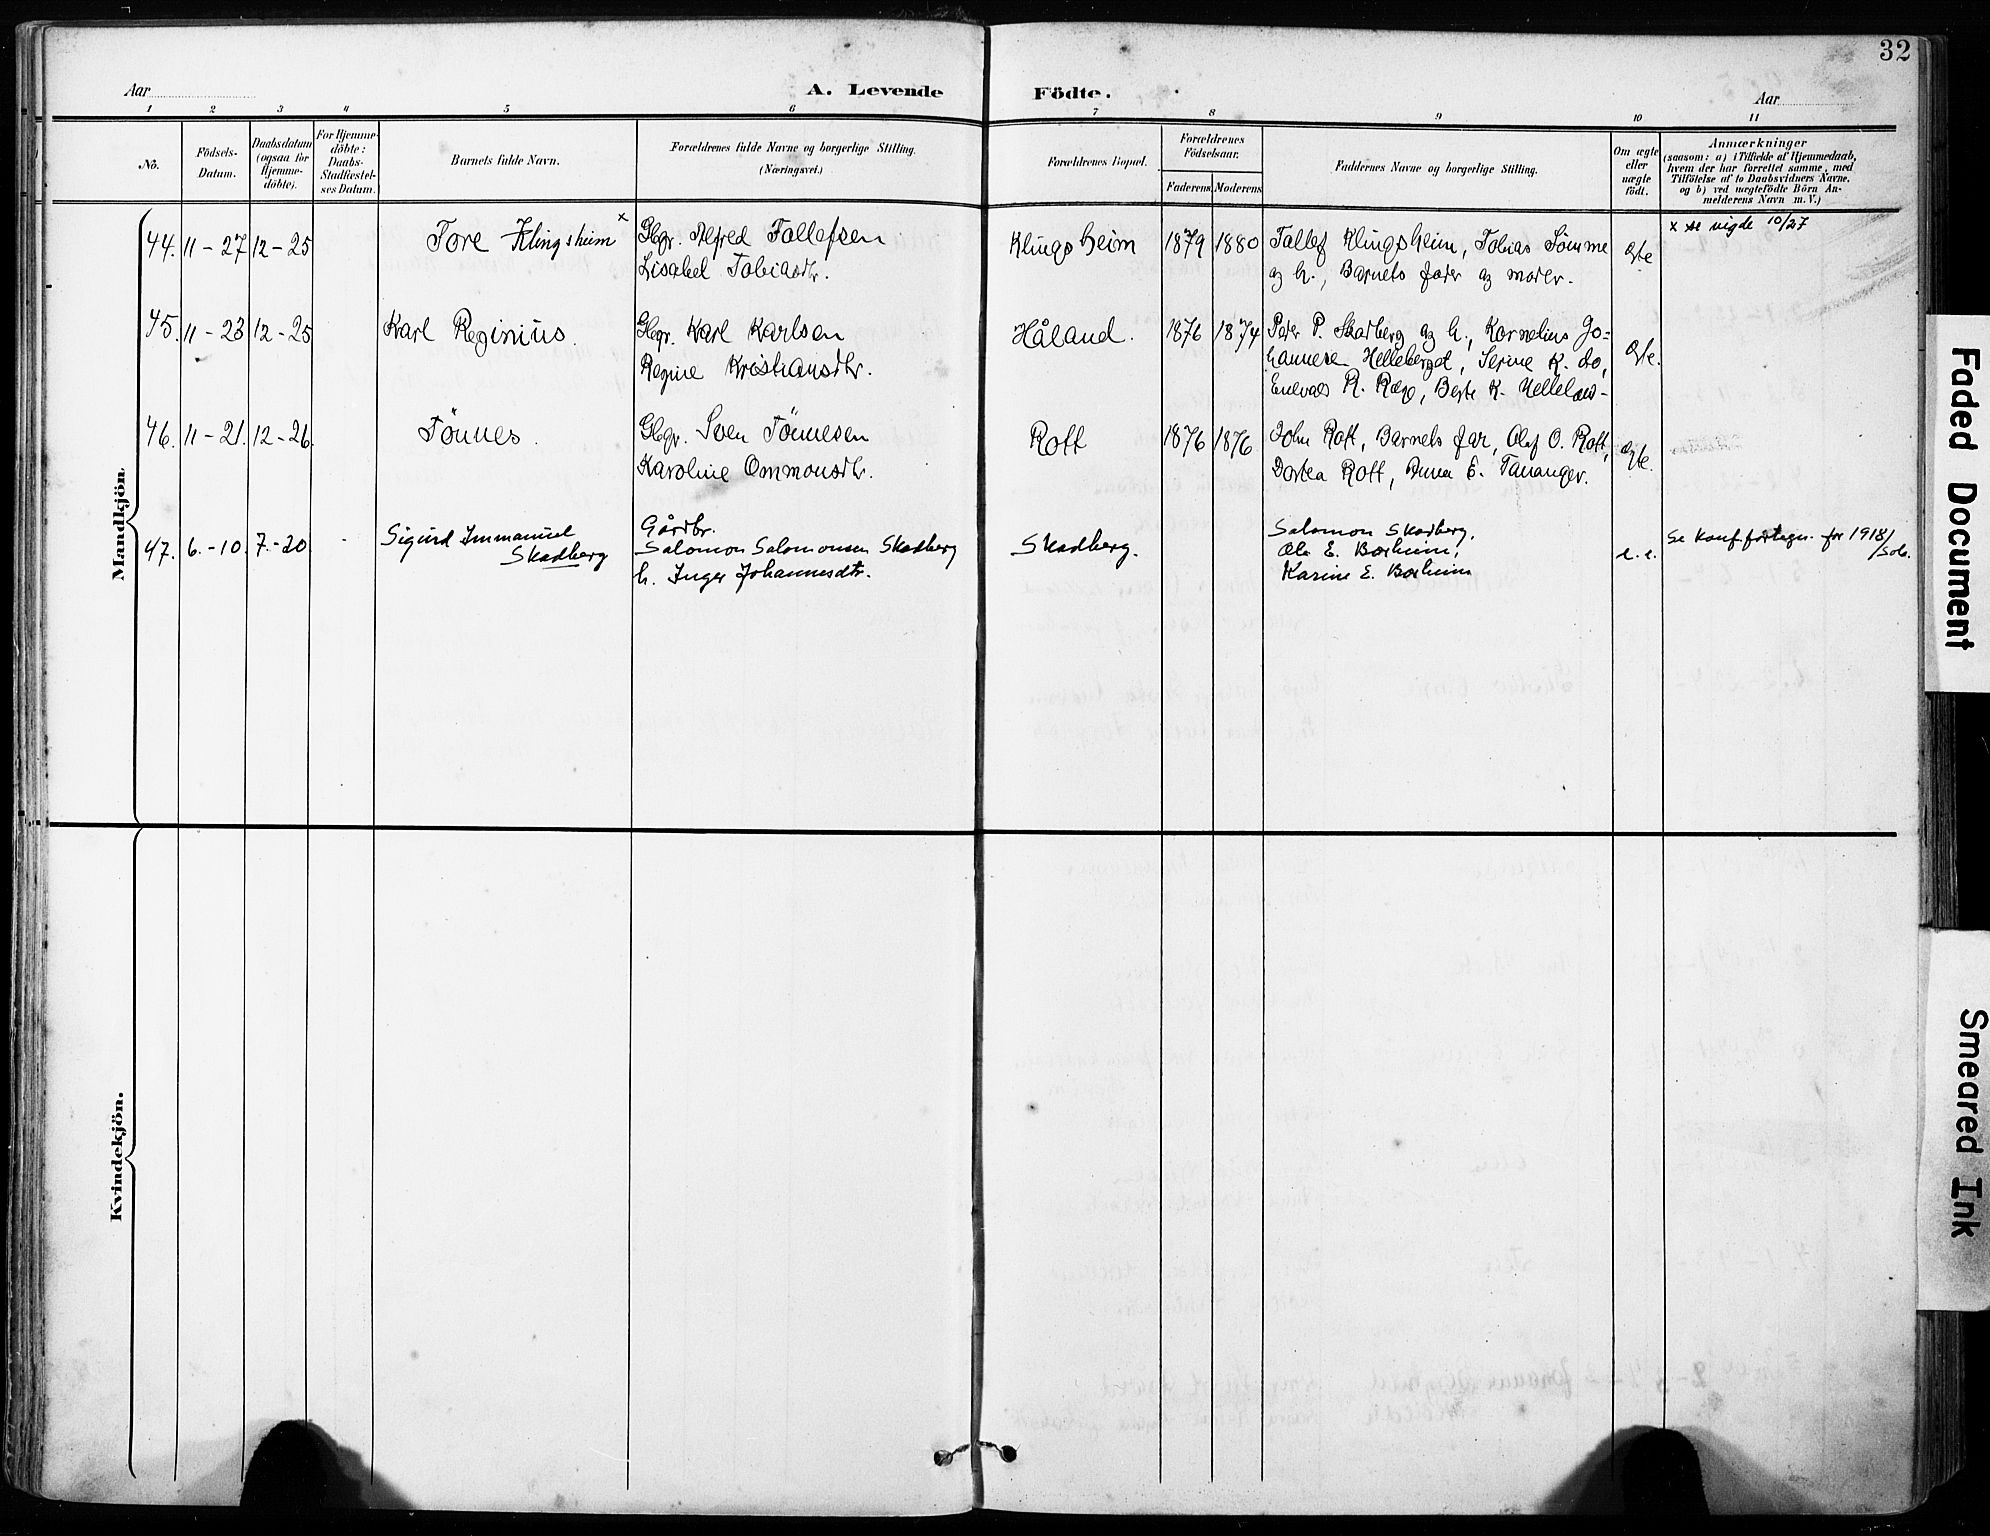 32
Aar
A. Levende Födte.
Aar
1 2 3 4 5 6 7 8 9 10 11
No.
Födsels-
Datum.
Daabsdatum
(ogsaa for
Hjemme-
döbte).
For Hjemme-
döbte:
Daabs-
Stadfæstel-
ses Datum.
Barnets fulde Navn.
Forældrenes fulde Navne og borgerlige Stilling.
(Næringsvei.)
Forældrenes Bopæl.
Forældrenes
Födselsaar.
Faderens Moderens
Faddernes Navne og borgerlige Stilling.
Om ægte
eller
uægte
födt.
Anmærkninger
(saasom: a) i Tilfælde af Hjemmedaab,
hvem der har forrettet samme, med
Tilföielse af to Daabsvidners Navne,
og b) ved uægtefödte Börn An-
melderens Navn m. V.)
Mandkjön.
44. 11-27 12-25 Tore Klingsheim x
Gbgr. Alfred Tollefsen
Lisabel Tobiasdtr.
Klingsheim 1879 1880
Tallef Klingsheim, Tobias Sömme
og h., Barnets fader og moder.
Ægte
x se vigde 10/27
45. 11-23 12-25 Karl Reginius.
Gbgr. Karl Karlsen
Regine Kristiansdtr.
Håland. 1876 1874
Peder P. Skadberg og h., Kornelius Jo=
hannese Helleberget, Serine K. do,
R. Ræge, Berte K. Helleland-
Ægte.
46. 11-21. 12-26. Tönnes.
Gbgr. Sven Tönnesen
Karoline Ommonsdtr.
Rott 1876 1876
John Rott, Barnets far, Olaf O. Rott,
Dortea Rott, Anna E. Tananger.
Ægte.
47. 6.-10. 7.-20. - Sigurd Immanuel
Skadberg
Gårdbr.
Salomon Salomonsen Skadberg
h. Inger Johannesdtr.
Skadberg.
Salomon Skadberg,
Ole E. Borheim,
Karine E. Borheim
e. e.
Se konf.fortegn. for 1918/
/Sole.
Kvindekjön.
Faded Document
Smeared Ink